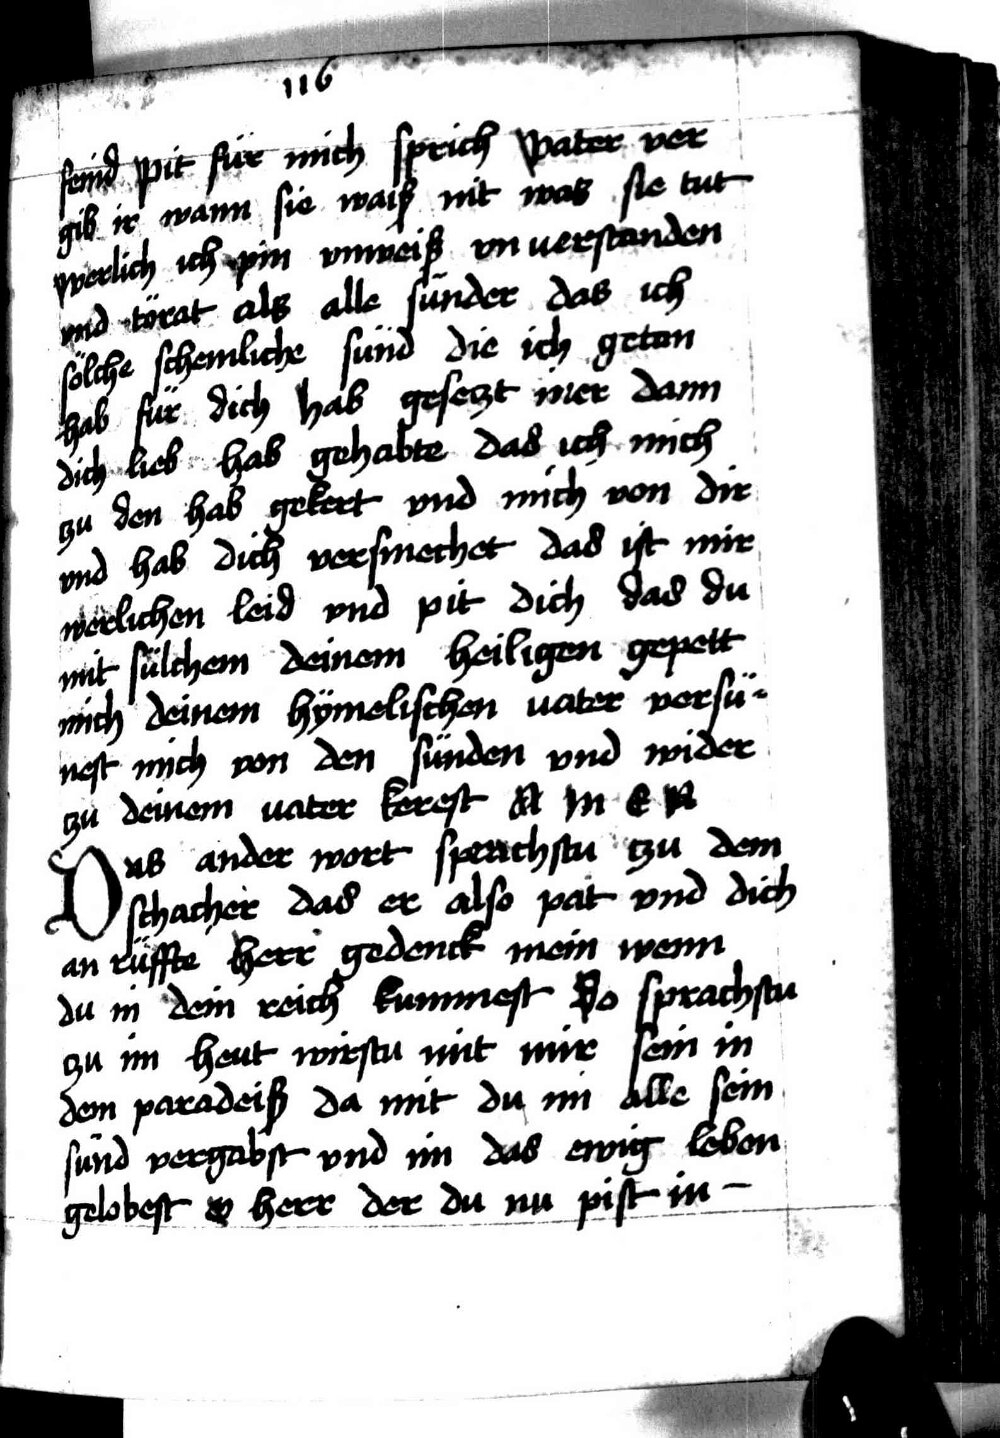 116
feind Pit für mich sprich Vater ver
gib ir wann sie waiß nit was sie tut
werlich ich pin vnweiß vn uerstanden
vnd törat als alle sünder das ich
sölche schemliche sünd die ich getan
hab für dich hab gesetzt mer dann
dich lieb hab gehabte das ich mich
tzu den hab gekert vnd mich von dir
vnd hab dich versmechet das ist mir
werlichen leid vnd pit dich das du
mit sülchem deinem heiligen gepett
mich deinem hÿmelischen uater versü-
nest mich von den sünden vnd wider
tzu deinem uater kerest A M E N
Das ander wort sprachstu tzu dem
schacher das er also pat vnd dich
an rüffte herr gedenck mein wenn
du in dein reich kummest Do sprachstu
tzu im heut wirstu mit mir sein in
dem paradeiß da mit du im alle sein
sünd vergabst vnd im das ewig leben
gelobest O herr der du nu pist in -